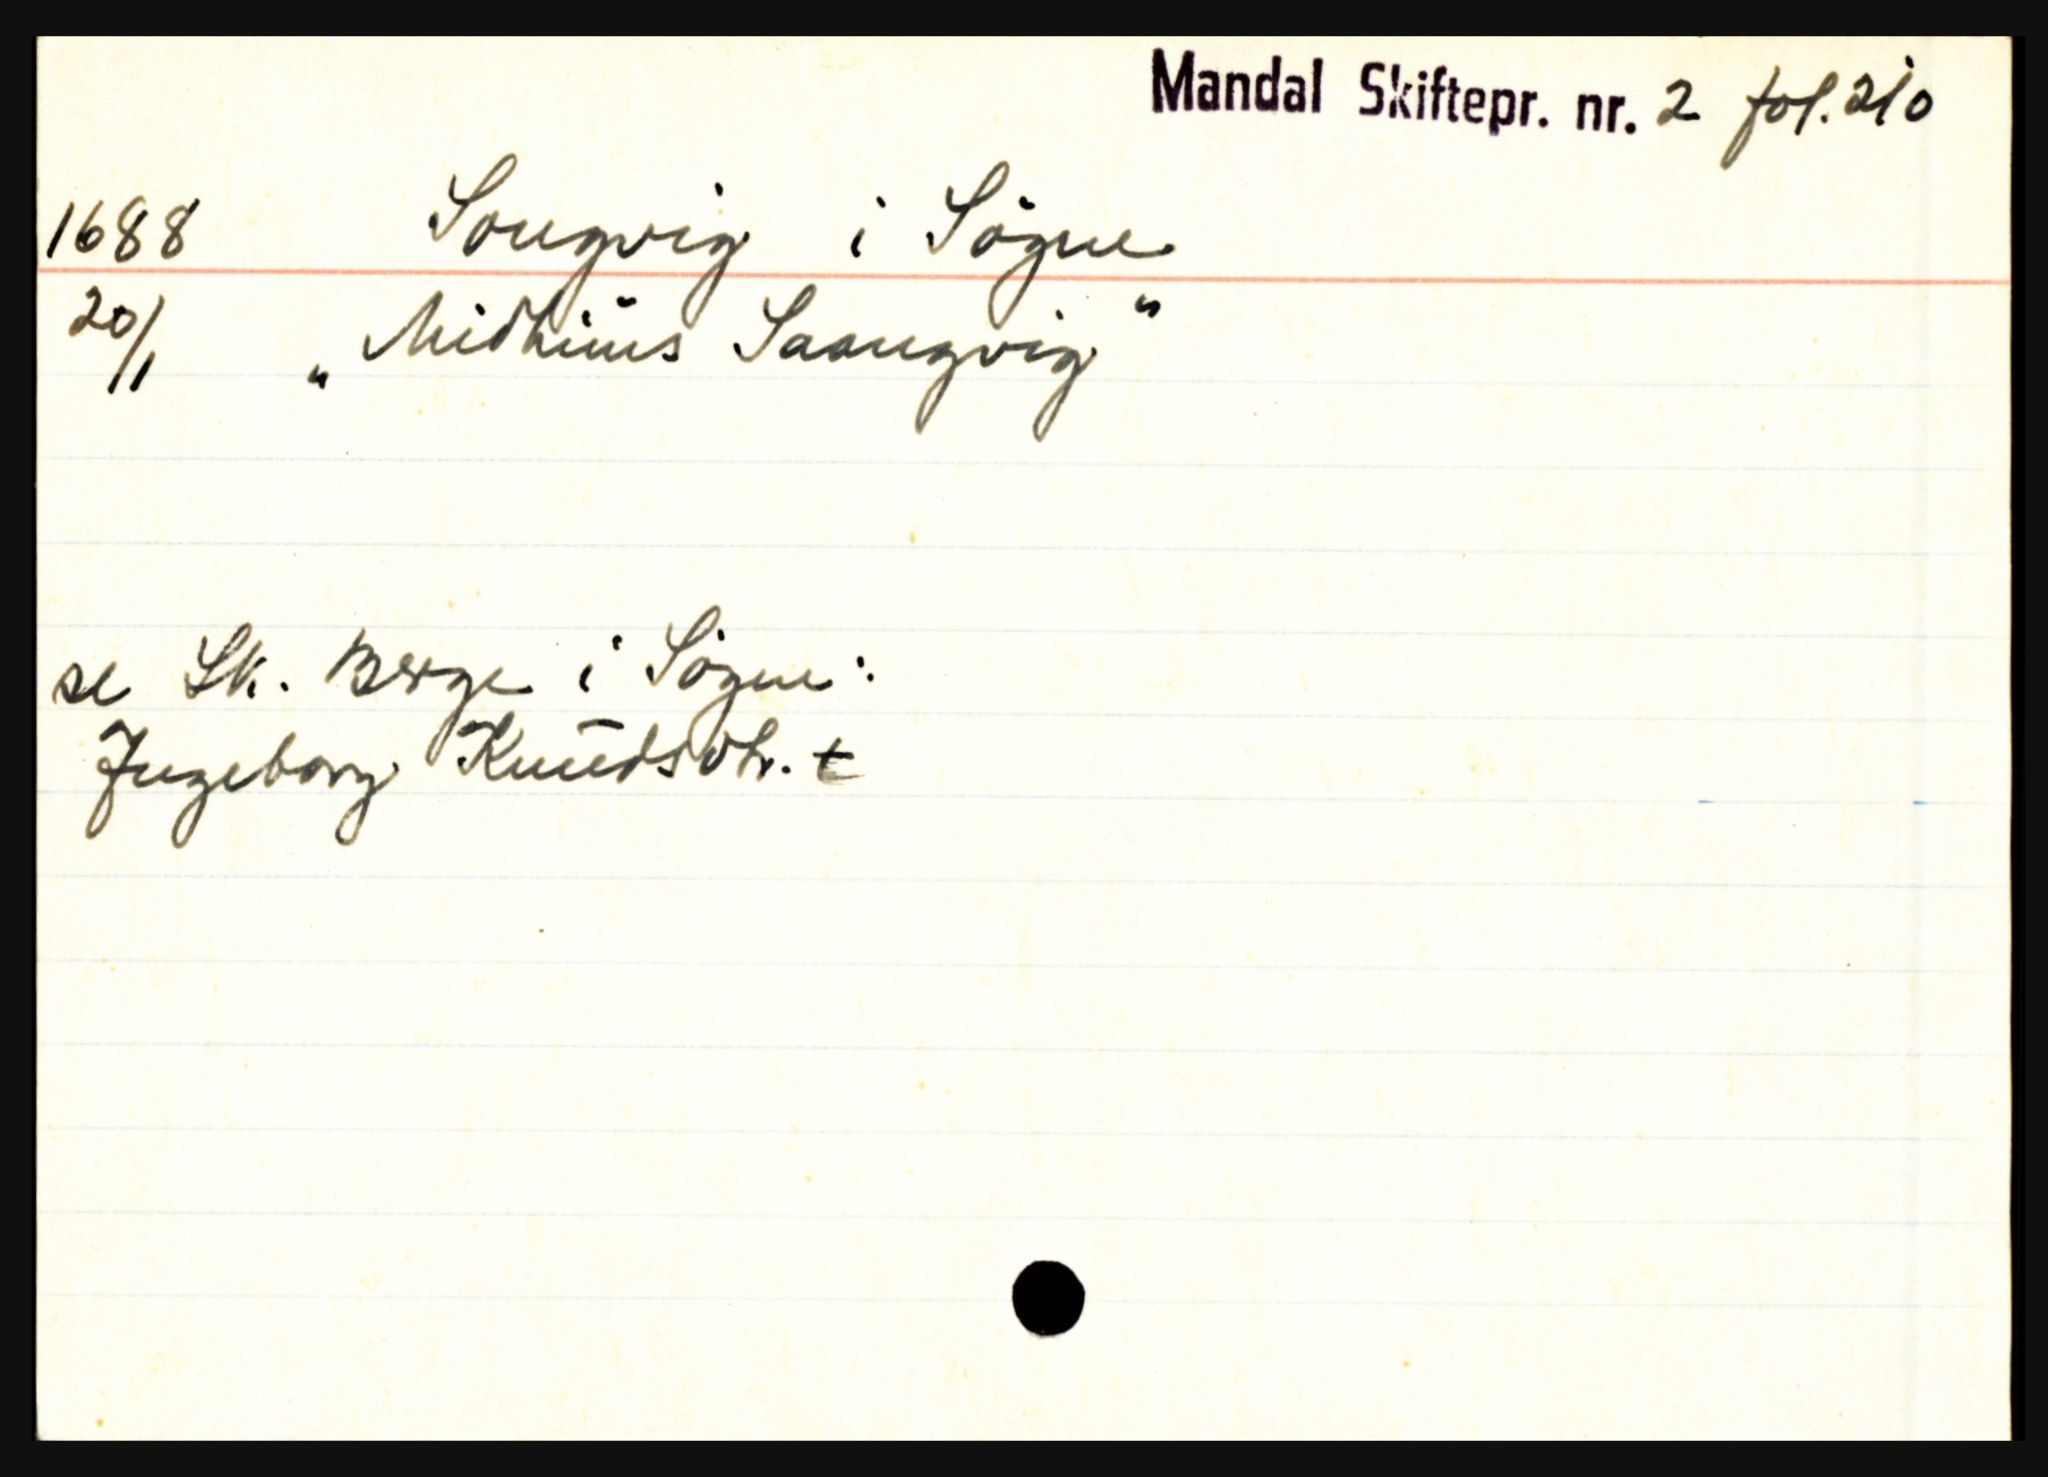 Mandal Skiftepr. nr. 2 fol. 210
1688 Songvig i Søgne
20/1 „Midhuus Saangvig"
se Sk. Berge i Søgne:
Ingeborg Knudsdtr. +